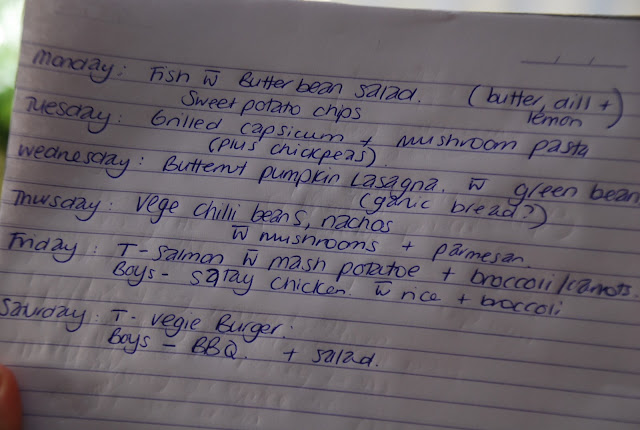 Monday: Fish w̅ Butter bean salad. (butter, dill +
Sweet potato chips lemon)
Tuesday: Grilled capsicum + mushroom pasta
(plus chickpeas).
Wednesday: Butternut pumpkin Lasagna. w̅ green bean
(garlic bread?)
Thursday: Vege chilli beans, nachos
w̅ mushrooms + parmesan.
Friday: T-Salmon w̅ mash potatoe + broccoli/carrots.
Boys- satay chicken. w̅ rice + broccoli
Saturday: T- vegie Burger.
Boys - BBQ. + salad.